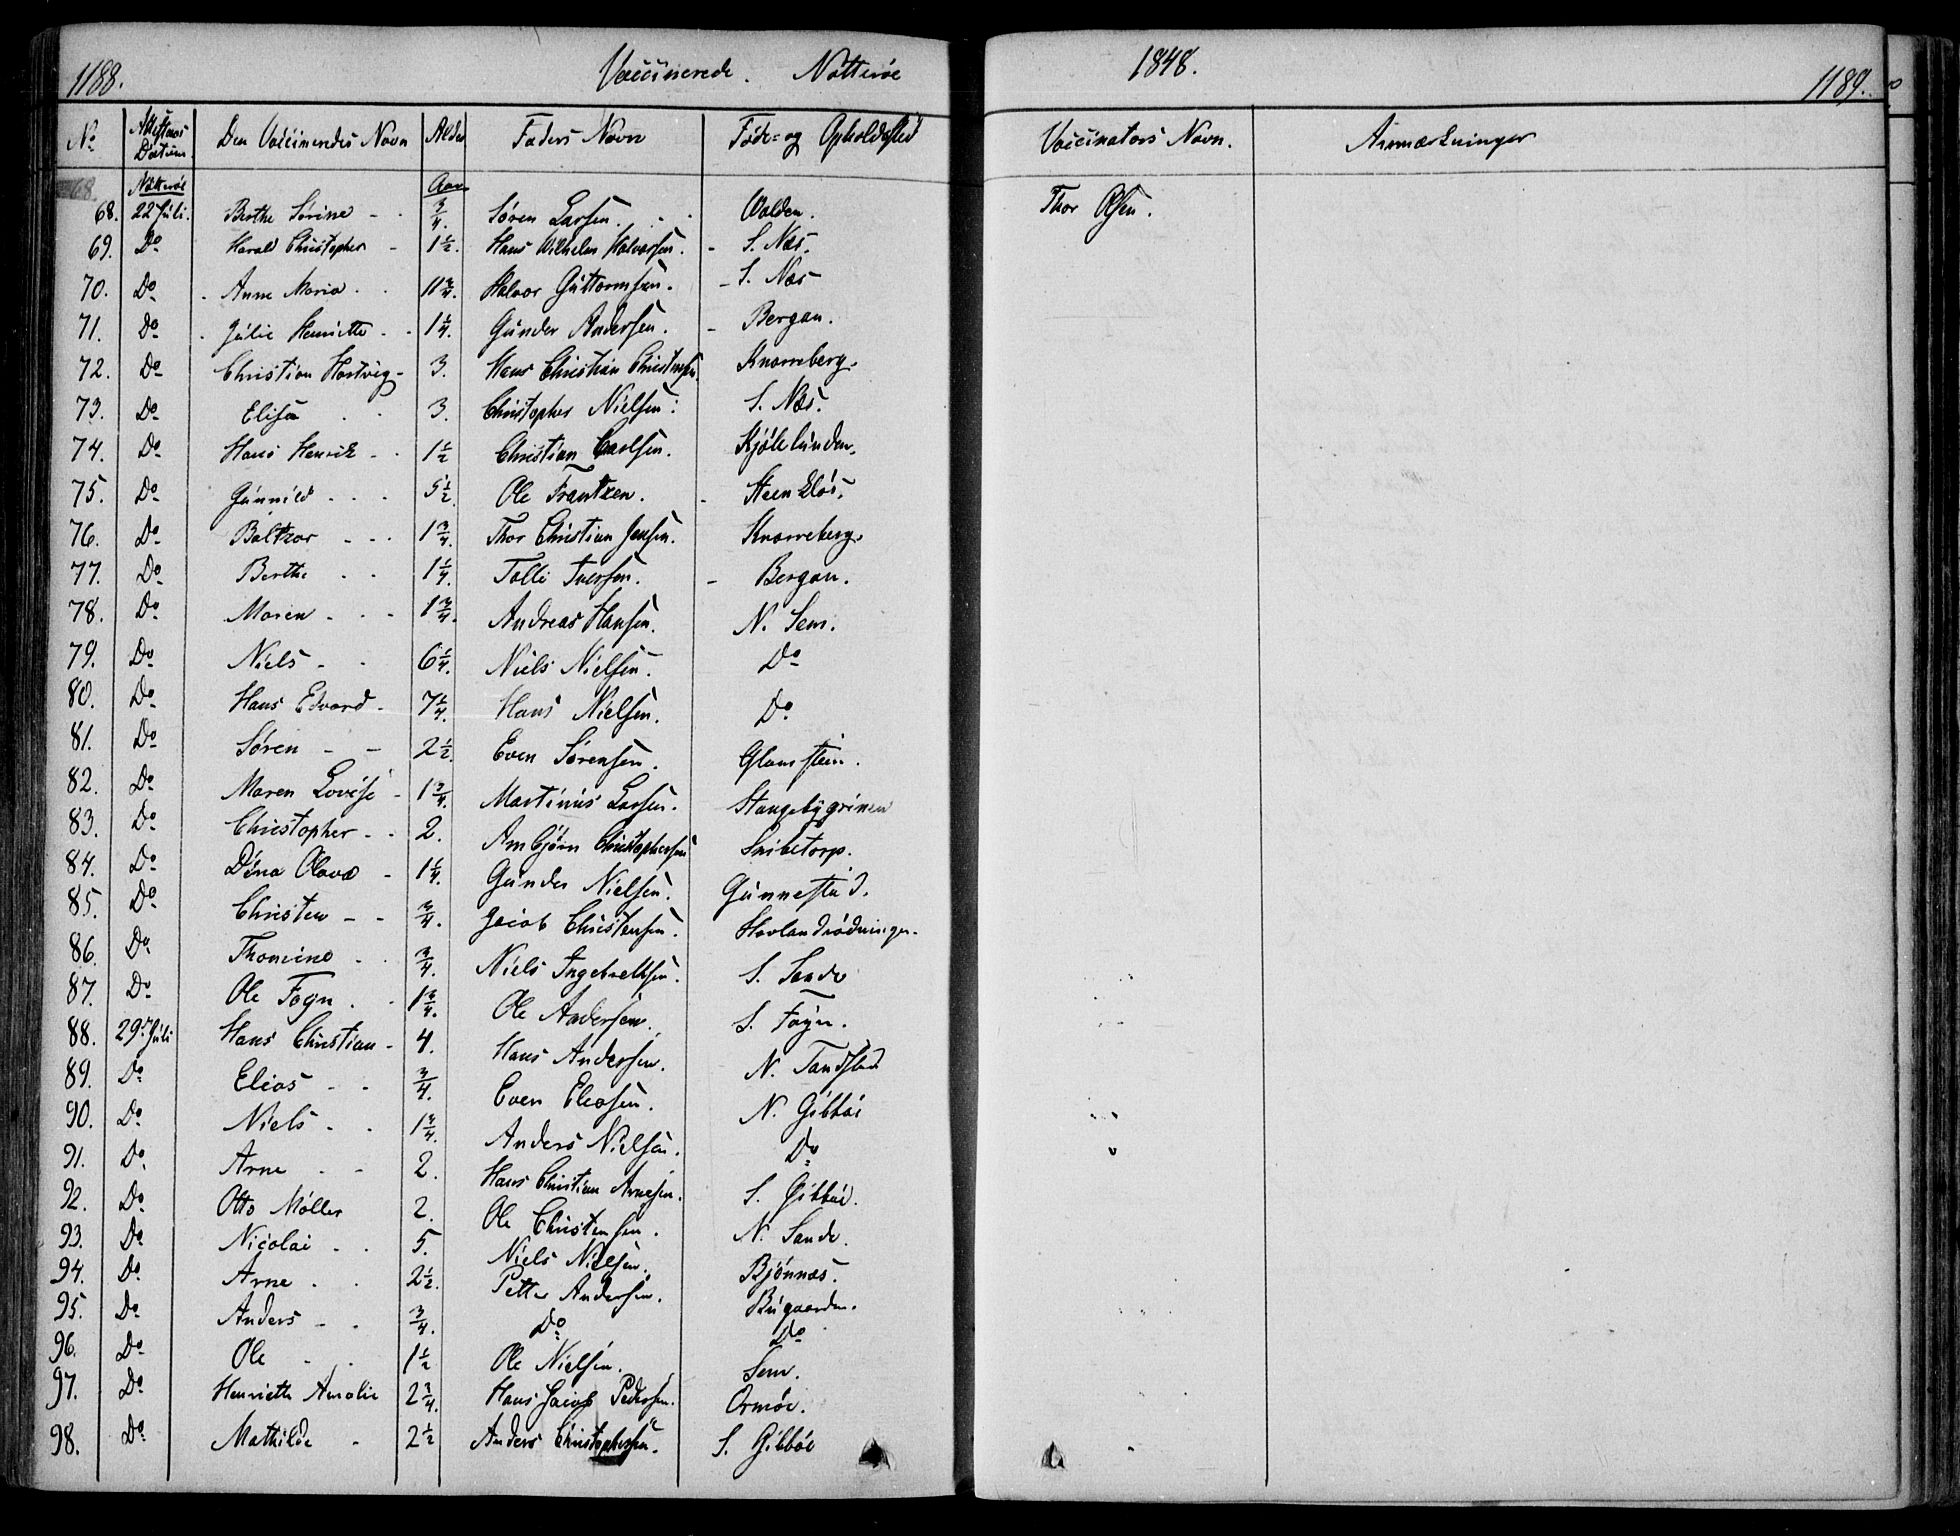 1188. Vaccinerede. Nøtterøe 1848. 1189.
No Attestens Datum Den Vaccineredes Navn Alder Faders Navn Føde- og Opholdssted Vaccinators Navn. Anmærkninger
68 Nøtterøe Aar
68. 22 Juli. Berthe Sørine - - 3/4. Søren Larsen. Volden. Thor Olsen.
69. Do Harald Christopher - 1 1/2. Hans Wilhelm Halvorsen. - S. Næs.
70. Do Anne Maria 11 3/4. Halvor Guttormsen. - S. Næs
71. Do Julie Henriette - - 1 1/4. Gunder Andersen. - Bergan.
72. Do Christian Hartvig - 3. Hans Christian Christensen. Knarreberg.
73. Do Elisa - 3. Christopher Nielsen. S. Næs.
74. Do Hans Henrik - - 1 1/2 Christian Carlsen. Kjølelunden.
75. Do Gunnild - - - 5 1/2. Ole Frantzen. - Steenkløs.
76. Do Baltzar - - - 1 3/4. Thor Christian Jensen. Knarreberg.
77. Do Berthe - - 1 1/4. Tolli Iversen. - Bergan.
78. Do Maren - - - 1 3/4. Andreas Hansen. N. Sem.
79. Do Niels - - 6 1/4. Niels Nielsen. Do
80. Do Hans Edvard - 7 1/4. Hans Nielsen. Do
81. Do Søren - - 2 1/2. Even Sørensen. Glomstein.
82. Do Maren Lovise - 1 3/4. Martinus Larsen. Stangebygrinden
83. Do Christopher - - 2. Arnbjørn Christophersen Snibetorp.
84. Do Dina Olava - 1 1/4. Gunder Nielsen. Gunnestad.
85. Do Christen - - 3/4. Jacob Christensen. Hovlandrødningen.
86. Do Thomine - - 3/4. Niels Ingebretsen. S. Sande
87. Do Ole Føyn. - 1 3/4. Ole Andersen. S. Føyn.
88. 29de Juli Hans Christian - 4. Hans Andersen. N. Tandstad
89. Do Elias - - 3/4. Even Eleasen. N. Gibbøe
90. Do Niels - - 1 3/4. Anders Nielsen. Do
91. Do Arne - - 2. Hans Christian Arnesen. S. Gibbøe.
92. Do Otto Møller 2. Ole Christensen. N. Sande.
93. Do Nicolai - - 5. Niels Nielsen. Bjønnæs.
94. Do Arne - - 2 1/2. Petter Andersen. Buegaarden.
95. Do Anders - - 3/4. Do Do
96. Do Ole - - 1 1/2 Ole Nielsen. Sem.
97. Do Henriette Amalie 2 3/4. Hans Jacob Pedersen. Ormøe.
98. Do Mathilde - 2 1/2 Anders Christophersen. S. Gibbøe